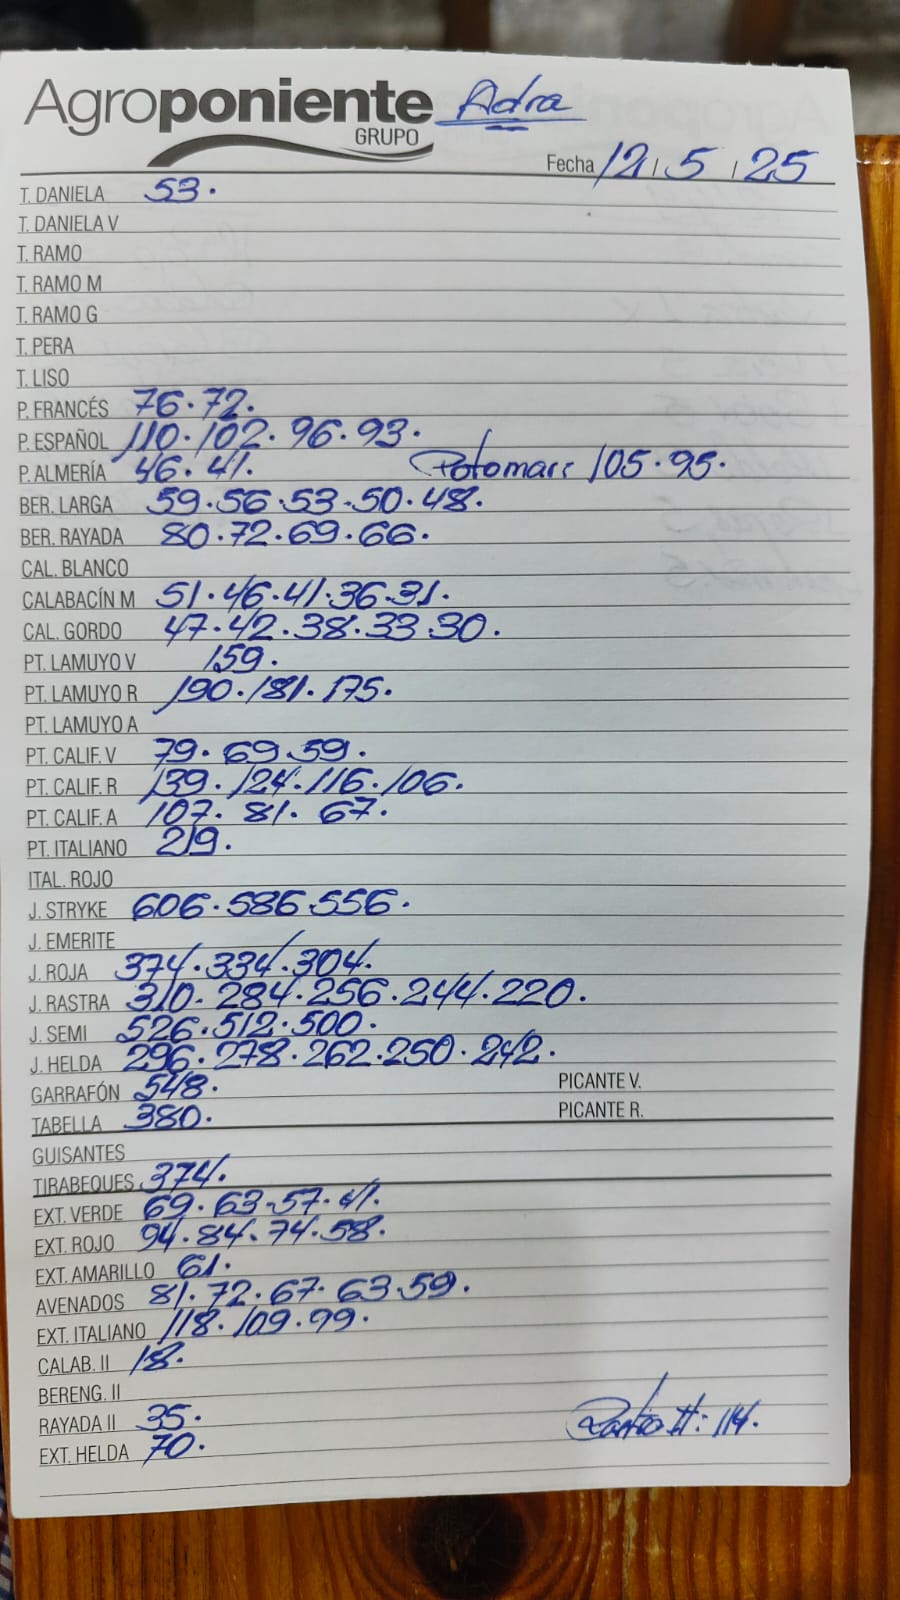 Agroponiente Adra
GRUPO
Fecha 12 / 5 / 25
T. DANIELA 53.
T. DANIELA V
T. RAMO
T. RAMO M
T. RAMO G
T. PERA
T. LISO
P. FRANCÉS 76.72.
P. ESPAÑOL 110.102.96.93.
P. ALMERÍA 46.41. Potomarr 105.95.
BER. LARGA 59.56.53.50.48.
BER. RAYADA 80.72.69.66.
CAL. BLANCO
CALABACÍN M 51.46.41.36.31.
CAL. GORDO 47.42.38.33.30.
PT. LAMUYO V 159.
PT. LAMUYO R 190.181.175.
PT. LAMUYO A
PT. CALIF. V 79.69.59.
PT. CALIF. R 139.124.116.106.
PT. CALIF. A 107.81.67.
PT. ITALIANO 219.
ITAL. ROJO
J. STRYKE 606.586.556.
J. EMERITE
J. ROJA 374.334.304.
J. RASTRA 310.284.256.244.220.
J. SEMI 526.512.500.
J. HELDA 296.278.262.250.242.
GARRAFÓN 548. PICANTE V.
TABELLA 380. PICANTE R.
GUISANTES
TIRABEQUES 374.
EXT. VERDE 69.63.57.41.
EXT. ROJO 94.84.74.58.
EXT. AMARILLO 61.
AVENADOS 81.72.67.63.59.
EXT. ITALIANO 118.109.99.
CALAB. II 18.
BERENG. II
RAYADA II 35. II: 114.
EXT. HELDA 70.